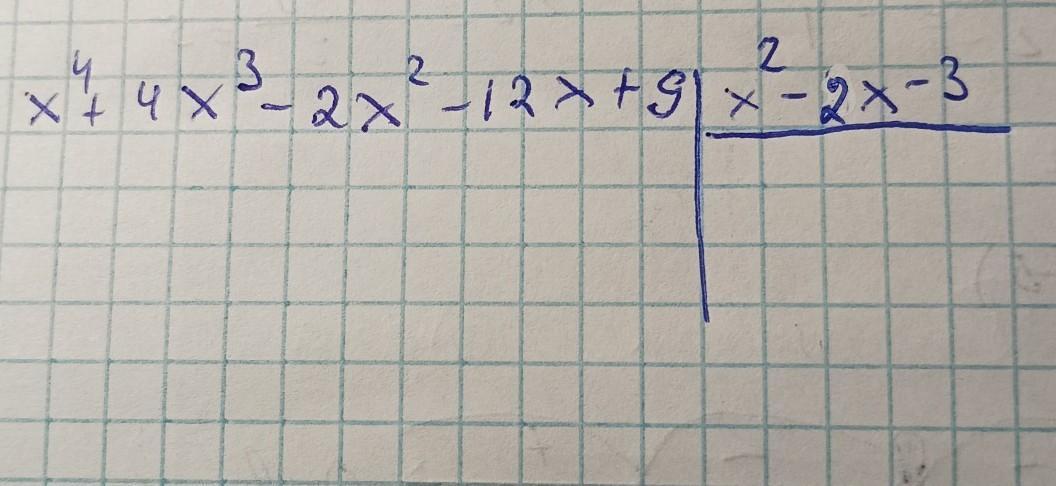 x⁴ + 4x³ - 2x² - 12x + 9 | x² - 2x - 3